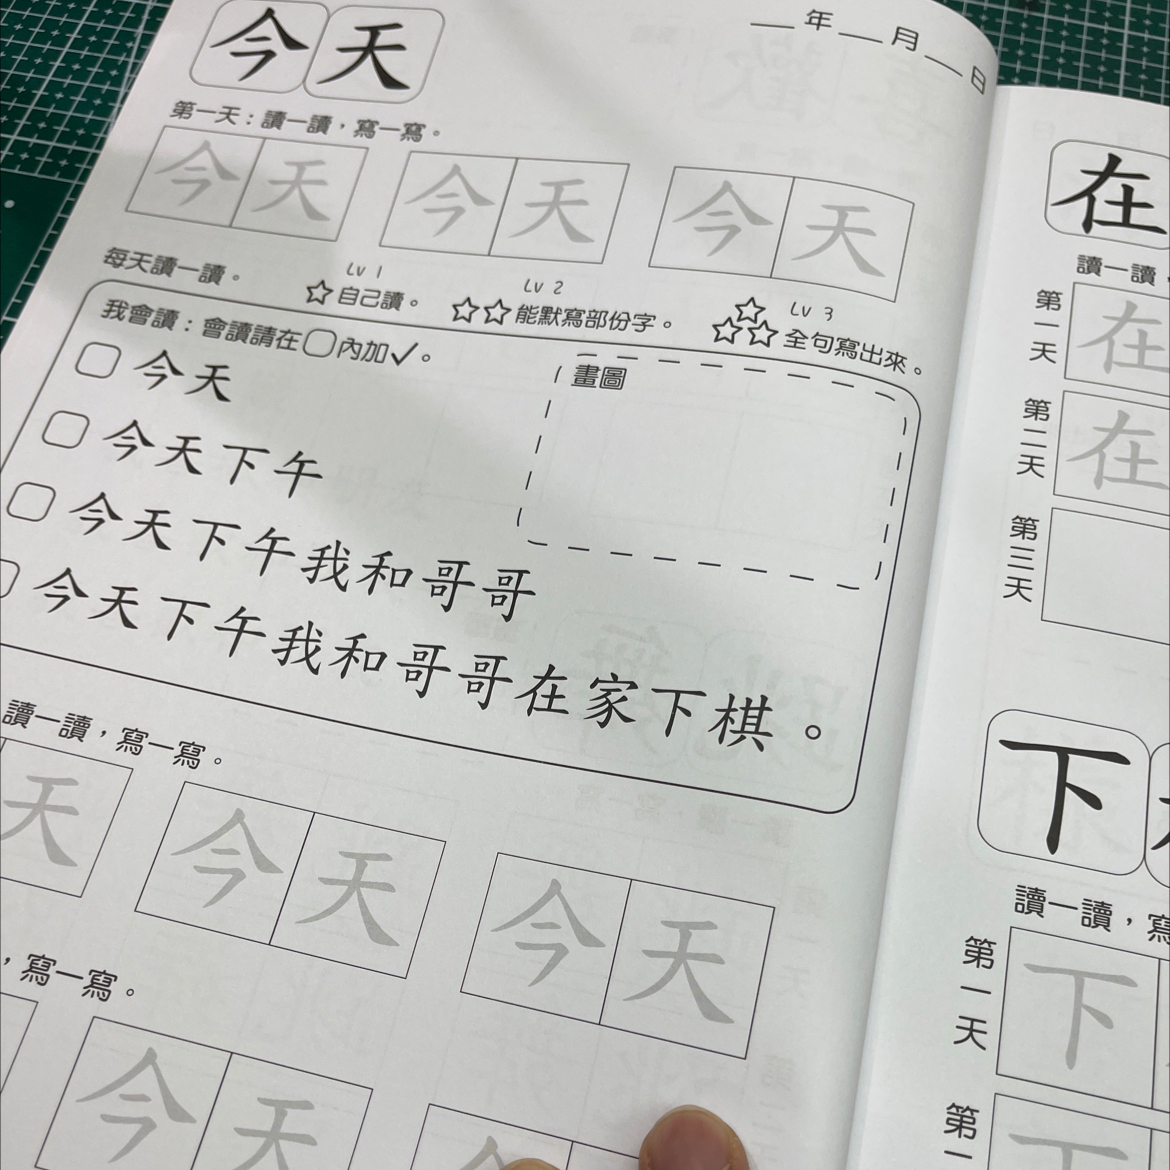 今天
__年__月__日
第一天：讀一讀，寫一寫。
今天 今天 今天
每天讀一讀。
Lv 1 ☆自己讀。
Lv 2 ☆☆能默寫部份字。
Lv 3 ☆☆☆全句寫出來。
我會讀：會讀請在○內加✓。
畫圖
今天
今天下午
今天下午我和哥哥
今天下午我和哥哥在家下棋。
讀一讀，寫一寫。
天 今天 今天
，寫一寫。
今天
在
讀一讀，
第一天
在
第二天
在
第三天
下
讀一讀，寫
第一天
下
第